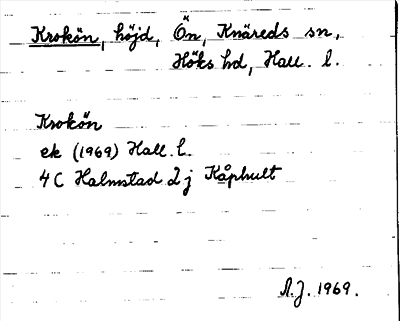 Krokön, höjd, Ön, Knäreds sn,
Höks hd, Hall. l.
Krokön
ek (1969) Hall. l.
4C Halmstad 2j Kåphult
A.J. 1969.